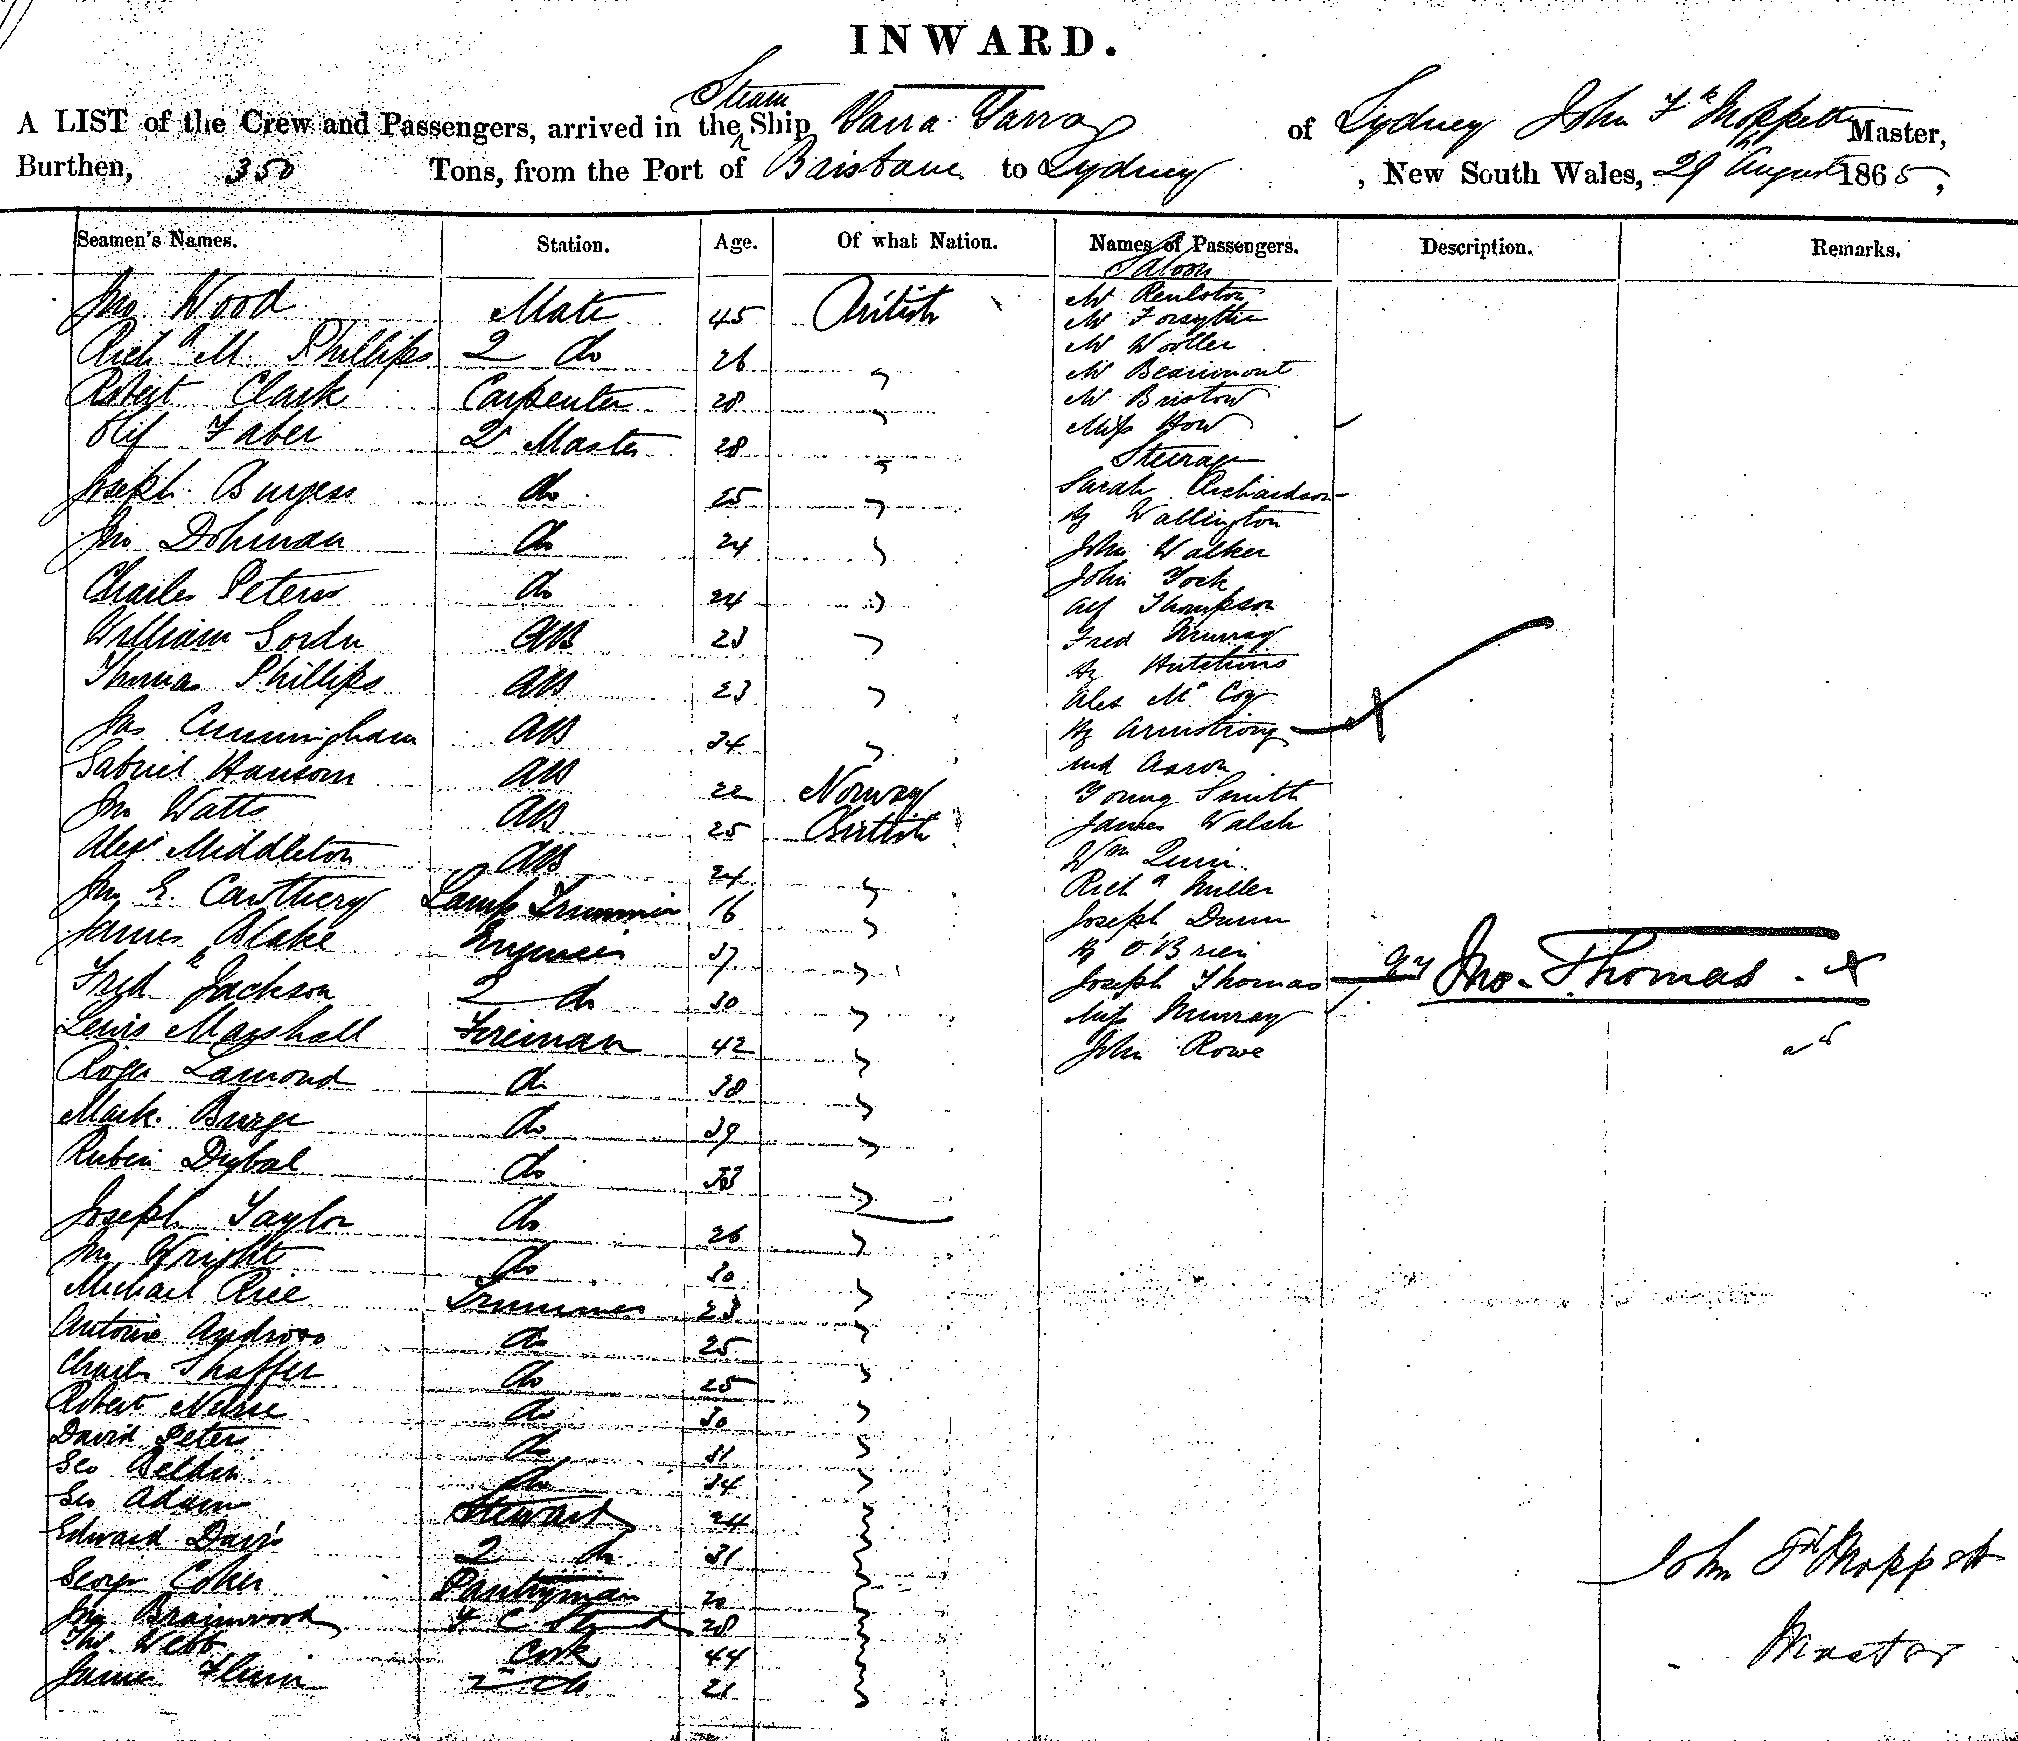 INWARD.
A LIST of the Crew and Passengers, arrived in the Steam Ship Yarra Yarra of Sydney John Fk Moppett Master,
Burthen, 350 Tons, from the Port of Brisbane to Sydney, New South Wales, 29 August 1865,
Seamen's Names. Station. Age. Of what Nation. Names of Passengers. Description. Remarks.
Saloon
Jno Wood Mate 45 British Mr Renlston
Mr Forsythe
Richd M. Phillips 2 do 26 " Mr Woller
Mr Beaumont
Robert Clark Carpenter 28 " Mr Bristow
Olif Faber Qr Master 28 " Miss How
Steerage
Joseph Burgess do 25 " Sarah Richardson
Hy Wallington
Jno Dohman do 24 " John Walker
John York
Charles Peters do 24 " Alf Thompson
William Gordn AB 23 " Fred Murray
Hy Hutchins
Thomas Phillips AB 23 " Alex McCoy
Jas Cunningham AB 34 " Hy Armstrong
Aaron
Gabriel Hansom AB 22 Norway Young Smith
Jno Watts AB 25 British James Walsh
Wm Quin
Alexr Middleton AB 24 " Richd Miller
Jno E. Cawthery Lamp Trimmer 16 " Joseph Dunn
James Blake Engineer 37 " Hy O'Brien
Fredk Jackson 2 do 30 " Joseph Thomas qy Jno. Thomas. x
Miss Murray
Lewis Marshall Fireman 42 " John Rowe
Roger Lamond do 38 "
Mark Burge do 39 "
Rubin Digbal do 33 "
Joseph Taylor do 26 "
Jno Wright do 30 "
Michael Rice Trimmer 23 "
Antoine Andross do 25 "
Charles Shaffer do 25 "
Robert Nurse do 30 "
David Peters do 31 "
Geo Beldin do 34 "
Geo Adam Steward 24 "
Edward Davis 2 do 31 "
George Coker Pantryman 20 "
Jno Brainwood F C Stewd 28 "
Thos Webb Cook 44 "
James Flinn 2 do 21 "
John Fk Moppett
Master